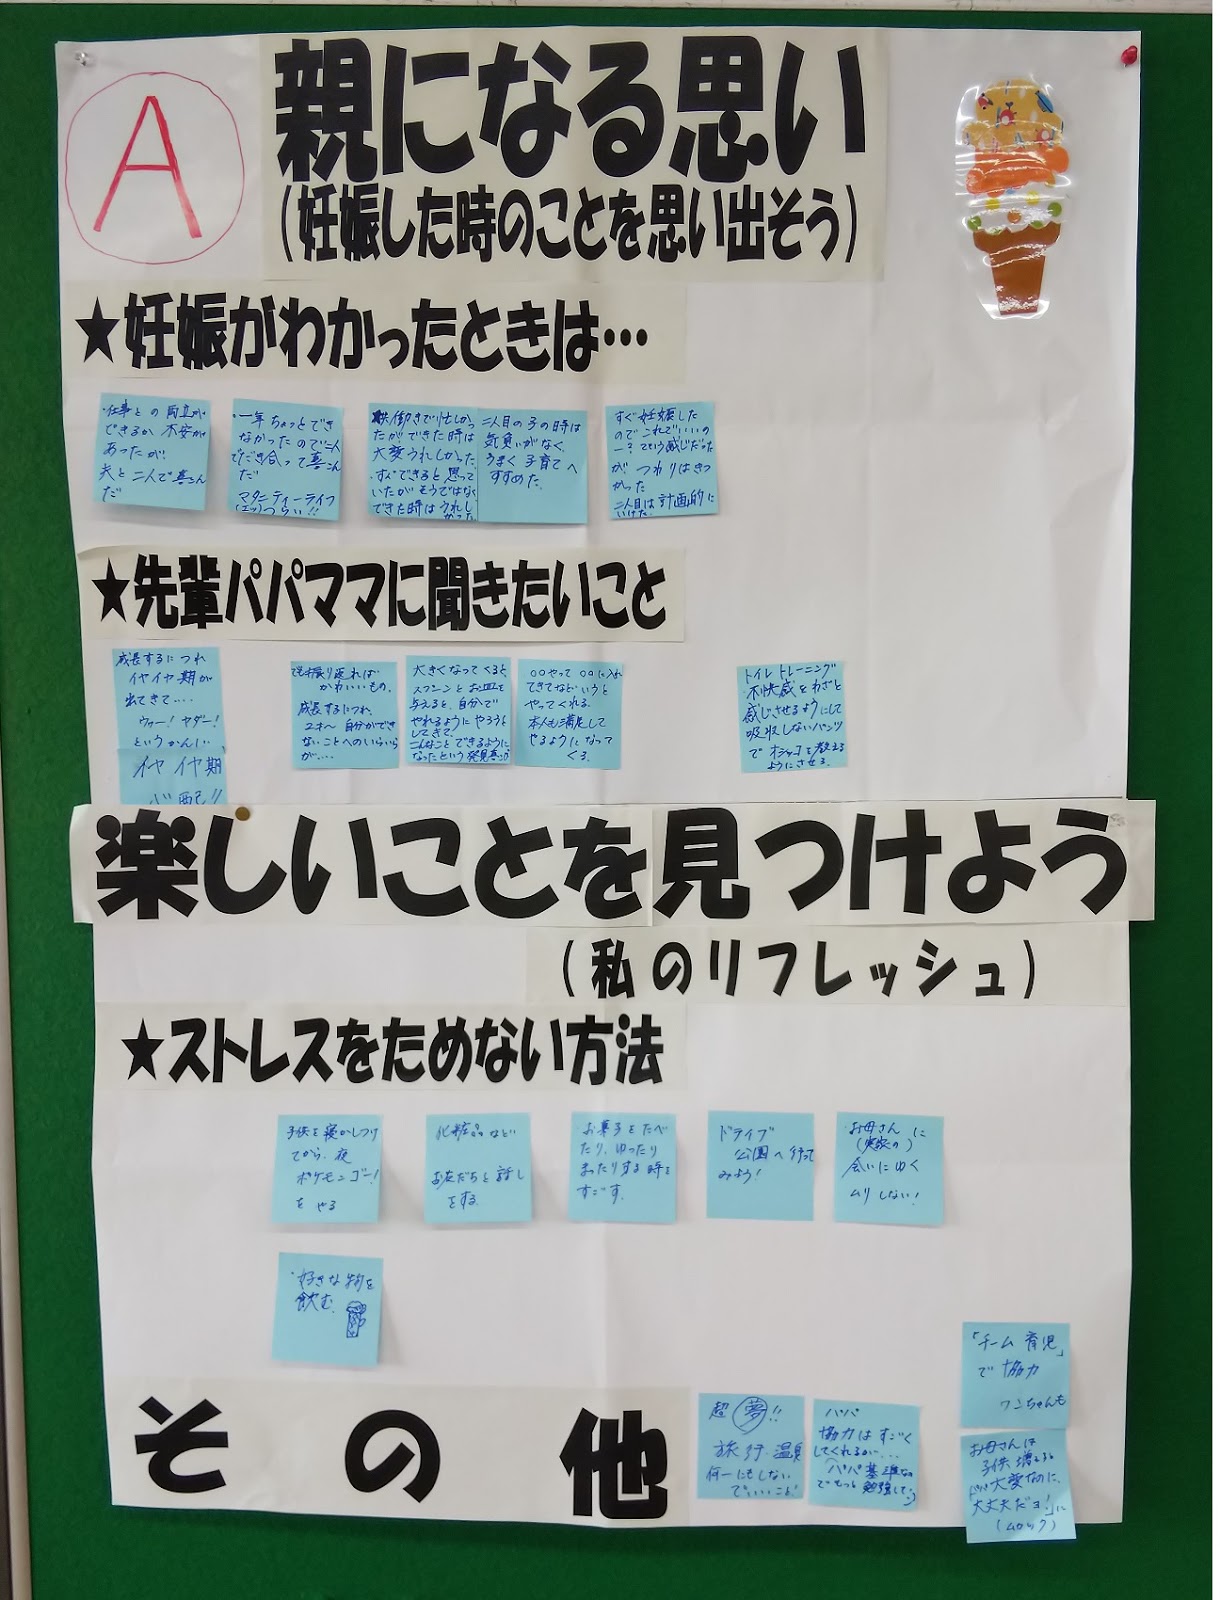 A
親になる思い
(妊娠した時のことを思い出そう)
★妊娠がわかったときは…
・仕事との両立が
できるか不安が
あったが!
夫と二人で喜こん
だ
・一年ちょっとでき
なかったので二人
でだき合って喜こん
だ
マタニティーライフ
つらい!!
共働きで忙しかっ
たができた時は
大変うれしかった。
・すぐできると思って
いたがそうではなく
できた時はうれし
かった
二人目の子の時は
気負いがなく、
うまく子育てへ
すすめた。
すぐ妊娠した
のでこれでいいの
ー?という感じだった
がつわりはきつ
かった
二人目は計画的に
いけた。
★先輩パパママに聞きたいこと
成長するにつれ
イヤイヤ期が
出てきて....
ウァー!ヤダー!
というかんじ、
イヤイヤ期
心配!!
振り返れば
かわいいもの。
成長するにつれ、
2才〜自分ができ
ないことへのいらいら
が....
大きくなってくると、
スプーンとお皿を
与えると、自分で
やれるようにやろうと
してきて、
こんなことできるように
なったという発見
〇〇やって〇〇に入れ
てきてなどいうと
やってくれる。
本人も満足して
やるようになって
くる。
トイレトレーニング
不快感をわざと
感じさせるようにして
吸収しないパンツ
でオシッコを教える
ようにさせる。
楽しいことを見つけよう
(私のリフレッシュ)
★ストレスをためない方法
子供を寝かしつけ
てから、夜
ポケモンゴー!
をやる
化粧品など
お友だちと話し
をする。
・お菓子をたべ
たり、ゆったり
まったりする時を
すごす。
ドライブ
公園へ行って
みよう!
・お母さんに
(実家の)
会いにゆく
ムリしない!
・好きな物を
飲む。
その他
超夢!!
旅行・温泉
何ーにもしない
でいいこと!
パパ
協力はすごく
してくれるが....
パパ基準なの
でもっと勉強して
「チーム育児」
で協力
ワンちゃんも
お母さんは
子供増えると
大変なのに、
大丈夫だヨ!」に